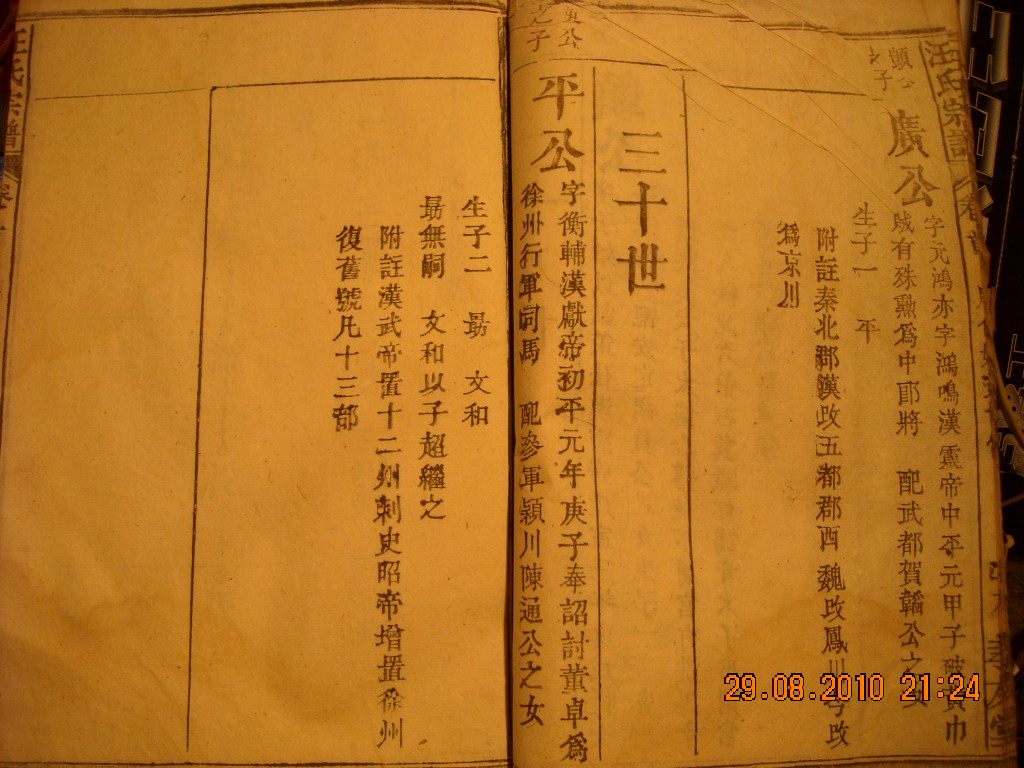 汪氏宗譜
卷首
顗公之子
廣公
字元鴻亦字鴻鳴漢靈帝中平元甲子破黃巾
賊有殊勳爲中郎將 配武都賀韜公之女
生子一 平
附註秦北郡漢改五都郡西魏改鳳川今改
爲京川
三十世
廣公之子
平公
字衡輔漢獻帝初平元年庚子奉詔討董卓爲
徐州行軍司馬 配參軍穎川陳通公之女
生子二 勗 文和
勗無嗣 文和以子超繼之
附註漢武帝置十二州刺史昭帝增置徐州
復舊號凡十三部
汪氏宗譜
29.08.2010 21:24